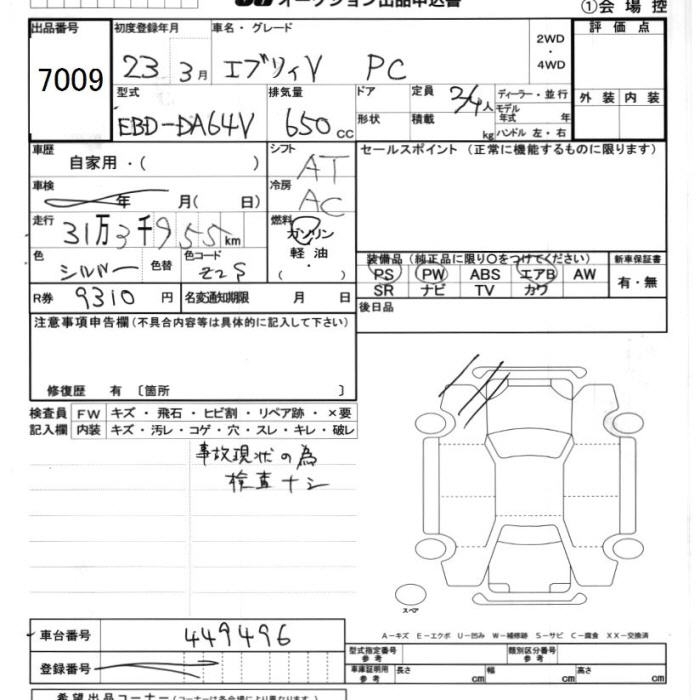 オークション出品申込書
①会場控
出品番号 初度登録年月 車名・グレード 2WD・4WD 評価点
7009 23 3月 エブリィV PC
型式 排気量 ドア 定員 2/4人 ディーラー・並行 外装 内装
EBD-DA64V 650 CC 形状 積載 kg モデル年式 年
ハンドル 左・右
車歴 自家用・( ) シフト AT セールスポイント(正常に機能するものに限ります)
車検 年 月( 日) 冷房 AC
走行 31万3千955km 燃料 ガソリン
軽油
・( )
色 シルバー 色替 色コード Z2S
装備品(純正品に限り〇をつけてください) 新車保証書
PS PW ABS エアB AW 有・無
SR ナビ TV カワ
R券 9310 円 名変通知期限 月 日 後日品
注意事項申告欄(不具合内容等は具体的に記入して下さい)
修復歴 有 〔箇所 〕
検査員 FW キズ・飛石・ヒビ割・リペア跡・×要
記入欄 内装 キズ・汚レ・コゲ・穴・スレ・キレ・破レ
事故現状の為
検査ナシ
スペア
A-キズ E-エクボ U-凹み W-補修跡 S-サビ C-腐食 XX-交換済
車台番号 449496
型式指定番号 参考 類別区分番号 参考
登録番号
車庫証明用 参考 長さ cm 幅 cm 高さ cm
希望出品コーナー(コーナーは各会場により異なります)